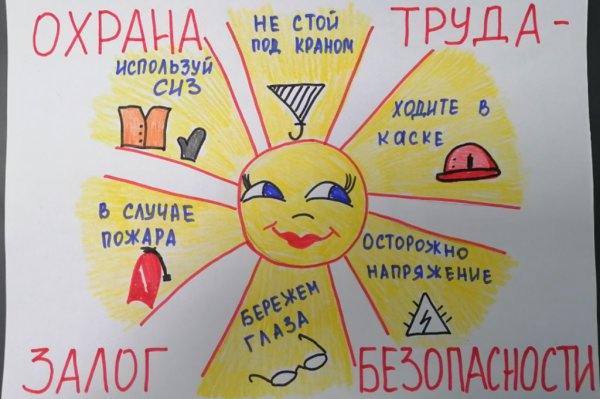 ОХРАНА
ТРУДА -
НЕ СТОЙ
ПОД КРАНОМ
ИСПОЛЬЗУЙ
СИЗ
ХОДИТЕ В
КАСКЕ
В СЛУЧАЕ
ПОЖАРА
ОСТОРОЖНО
НАПРЯЖЕНИЕ
БЕРЕЖЕМ
ГЛАЗА
ЗАЛОГ
БЕЗОПАСНОСТИ